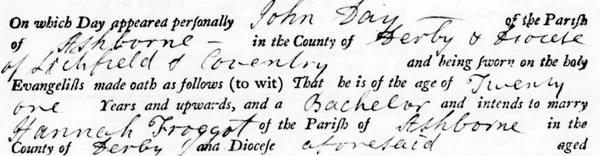 On which Day appeared personally John Day of the Parish
of Ashborne - in the County of Derby & Diocese
of Lichfield & Coventry and being sworn on the holy
Evangelists made oath as follows (to wit) That he is of the age of Twenty
one Years and upwards, and a Bachelor and intends to marry
Hannah Froggot of the Parish of Ashborne in the
County of Derby and Diocese aforesaid aged